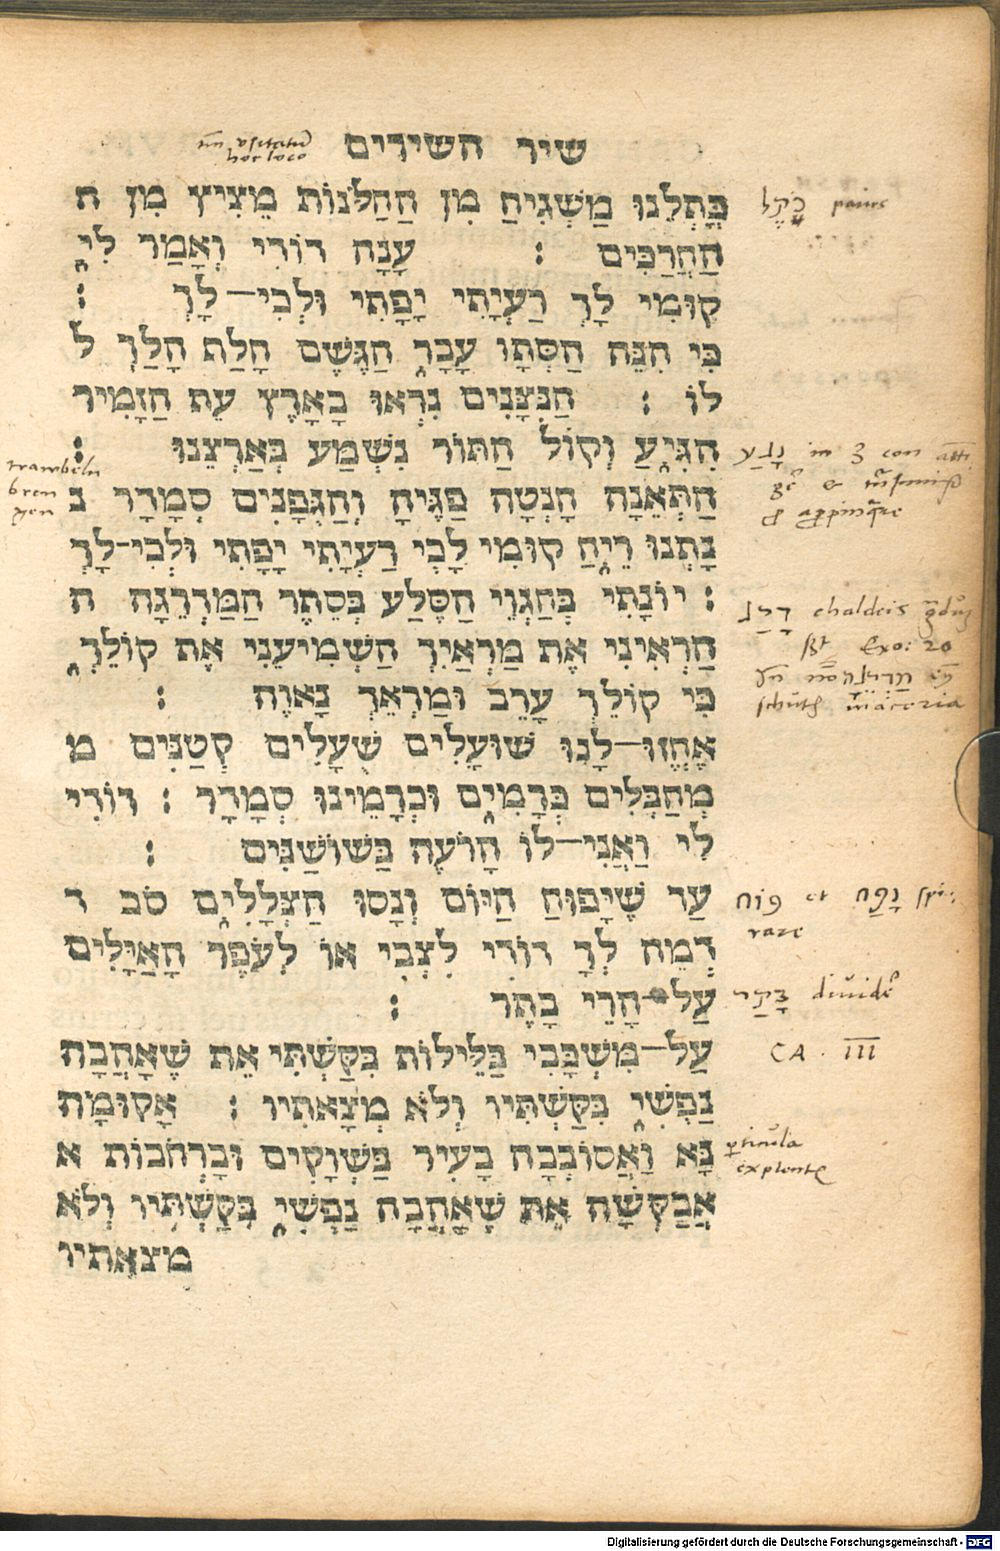 שיר השירים
כׇּתְלֵנוּ מַשְׁגִיחַ מִן הַחַלֹנוֹת מֵצִיץ מִן ה
הַחֲרַכִּים : עָנָה דוֹדִי וְאָמַר לִי
קוּמִי לָךְ רַעְיָתִי יָפָתִי וּלְכִי־לָךְ :
כִּי הִנֵּה הַסְּתָו עָבָר הַגֶּשֶׁם חָלַף הָלַךְ ל
לוֹ : הַנִּצָנִים נִרְאוּ בָאָרֶץ עֵת הַזָמִיר
הִגִּיעַ וְקוֹל הַתּוֹר נִשְׁמַע בְּאַרְצֵנוּ :
הַתְּאֵנָה חָנְטָה פַגֶּיהָ וְהַגְּפָנִים סְמָדָר נ
נָתְנוּ רֵיחַ קוּמִי לָכְי רַעְיָתִי יָפָתִי וּלְכִי־לָךְ
: יוֹנָתִי בְּחַגְוֵי הַסֶּלַע בְּסֵתֶר הַמַּדְרֵגָה ה
הַרְאִינִי אֶת מַרְאַיִךְ הַשְׁמִיעֵנִי אֶת קוֹלֵךְ
כִּי קוֹלֵךְ עָרֵב וּמַרְאֵךְ נָאוֶה :
אֶחֱזוּ־לָנוּ שׁוּעָלִים שֻׁעָלִים קְטַנִּים מ
מְחַבְּלִים כְּרָמִים וּכְרָמֵינוּ סְמָדָר : דוֹדִי
לִי וַאֲנִי־לוֹ הָרֹעֶה בַּשׁוֹשַׁנִּים :
עַד שֶׁיָּפוּחַ הַיּוֹם וְנָסוּ הַצְּלָלִים סֹב ד
דְמֵה לְךָ דוֹדִי לִצְבִי אוֹ לְעֹפֶר הָאַיָּלִים
עַל־הָרֵי בָתֶר :
עַל־מִשְׁכָּבִי בַּלֵּילוֹת בִּקַּשְׁתִּי אֵת שֶׁאָהֲבָה
נַפְשִׁי בִּקַּשְׁתִּיו וְלֹא מְצָאתִיו : אָקוּמָה
נָּא וַאֲסוֹבְבָה בָעִיר בַּשְּׁוָקִים וּבָרְחֹבוֹת א
אֲבַקְשָׁה אֵת שֶׁאָהֲבָה נַפְשִׁי בִּקַּשְׁתִּיו וְלֹא
מצאתיו
hoc loco
paries
bren
gen
in 3 con
נָגַע
chaldeis
Exo: 20
maceria
פוח et נָפַח spi:
rare
CA. III
Digitalisierung gefördert durch die Deutsche Forschungsgemeinschaft - DFG